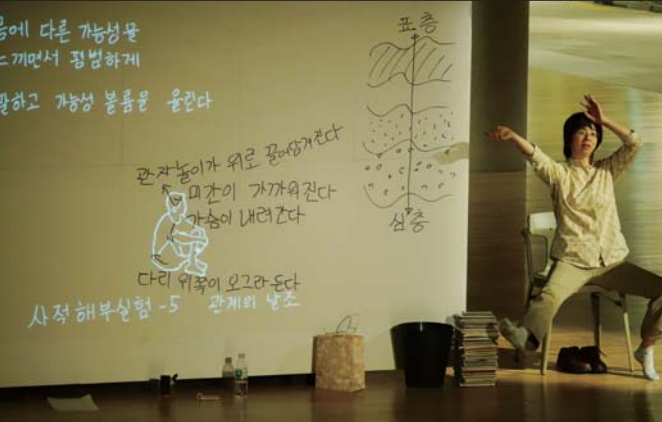 다른 가능성을
끼면서 평범하게
말하고 가능성 볼륨을 올린다
표층
관자놀이가 위로 끌어당겨진다
미간이 가까워진다
가슴이 내려간다
심층
다리 위쪽이 오그라든다
사적해부실험-5 관계의 날조